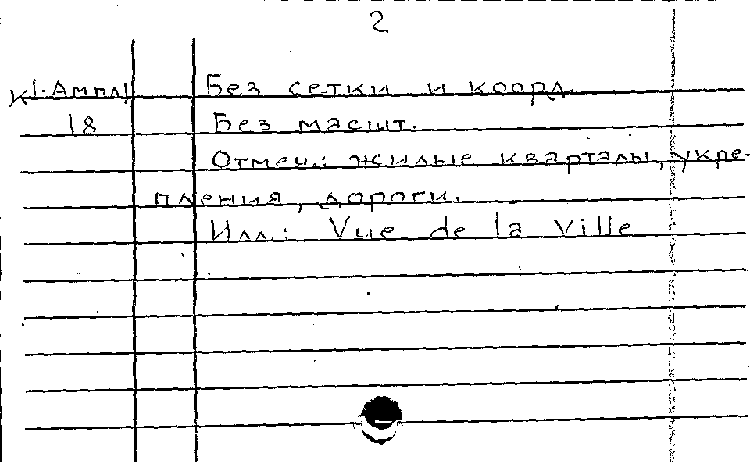 2
К1-Ампл Без сетки и коорд.
18 Без масшт.
Отмеч.: жилые кварталы, укре-
пления, дороги.
Илл.: Vue de la ville